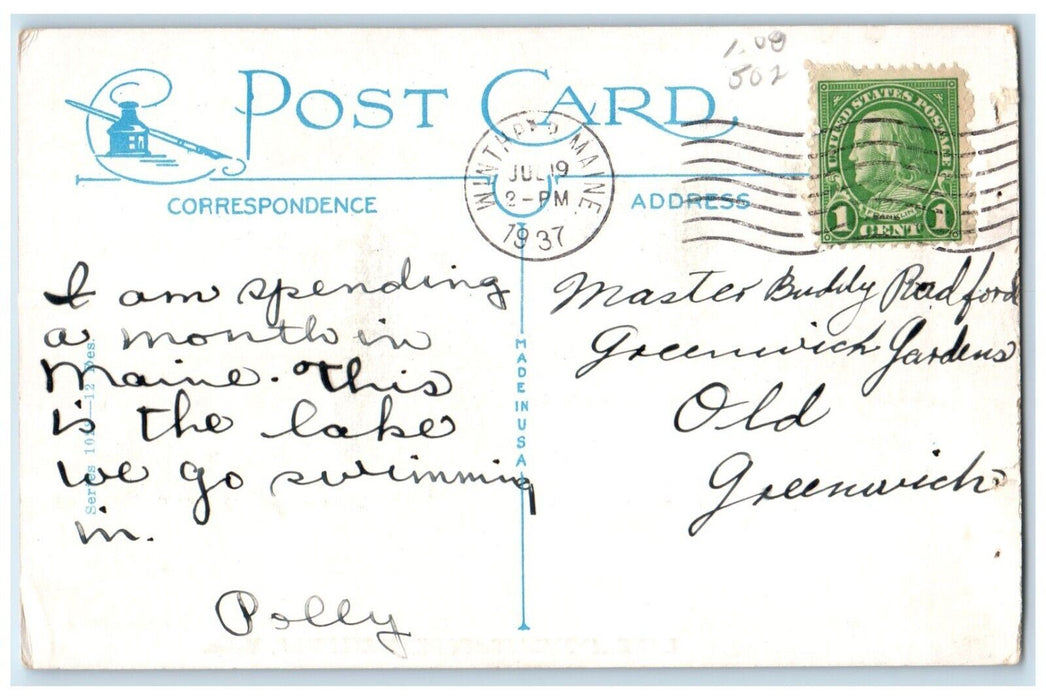 1.00
502
POST CARD
UNITED STATES POSTAGE
FRANKLIN
1 CENT 1
MAINE
JUL 19
2-PM
1937
CORRESPONDENCE
ADDRESS
I am spending
a month in
Maine. This
is the lake
we go swimming
in.
Polly
Master Buddy Radford
Greenwich Gardens
Old
Greenwich
MADE IN USA
Series 10 —12 Des.